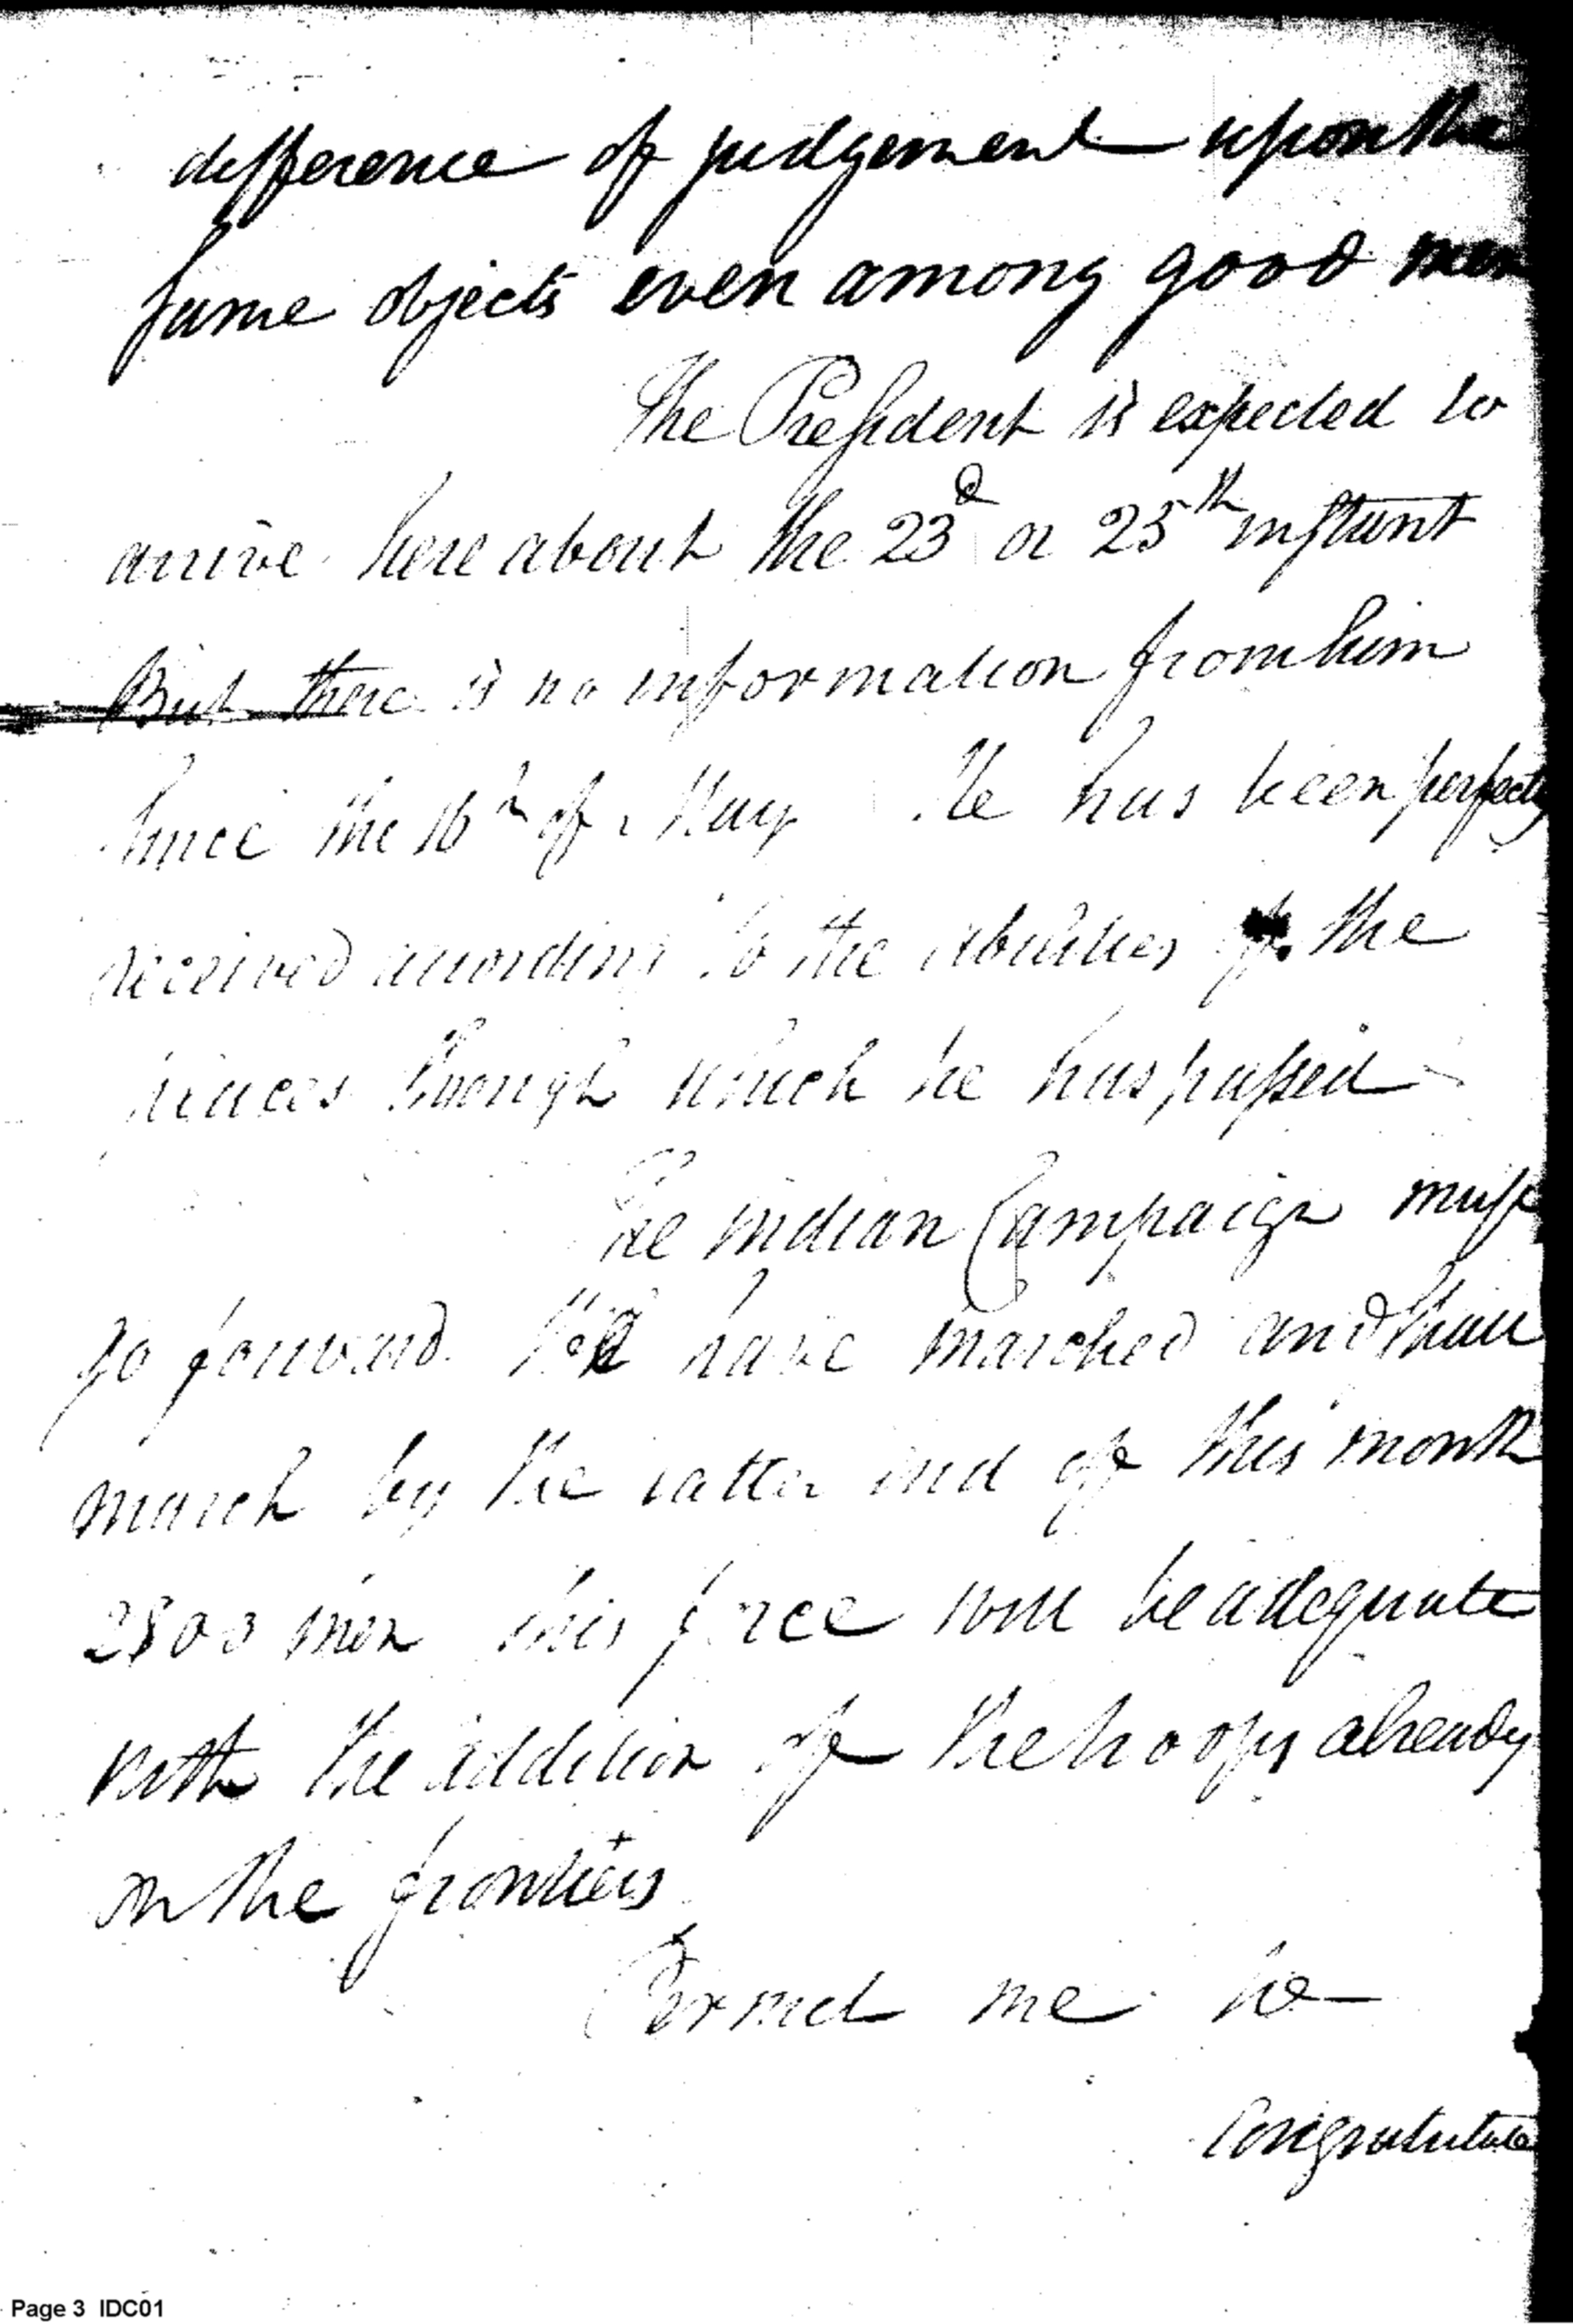 difference of judgement upon the
same objects even among good men
The President is expected to
arrive here about the 23d or 25th instant
But there is no information from him
since the 16th of May He has been perfectly
received according to the abilities of the
places through which he has passed -
The indian Campaign must
go forward. We have marched and shall
march by the latter end of this month
2800 men this force will be adequate
with the addition of the troops already
on the frontiers
Permit me to
Congratulate
Page 3 IDC01